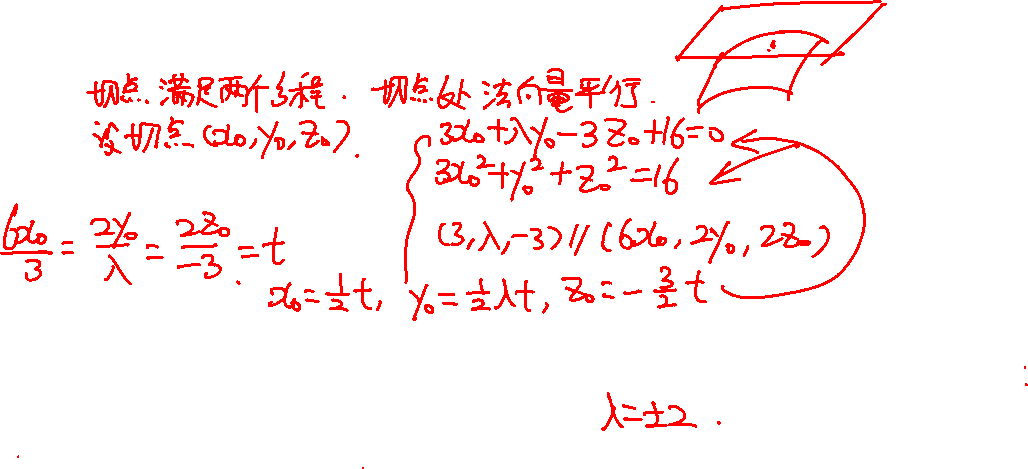 切点满足两个方程. 切点处法向量平行.
设切点(x₀,y₀,z₀).
3x₀+λy₀-3z₀+16=0
3x₀²+y₀²+z₀²=16
(3,λ,-3)//(6x₀,2y₀,2z₀)
6x₀/3=2y₀/λ=2z₀/-3=t
x₀=1/2t, y₀=1/2λt, z₀=-3/2t
λ=±2.